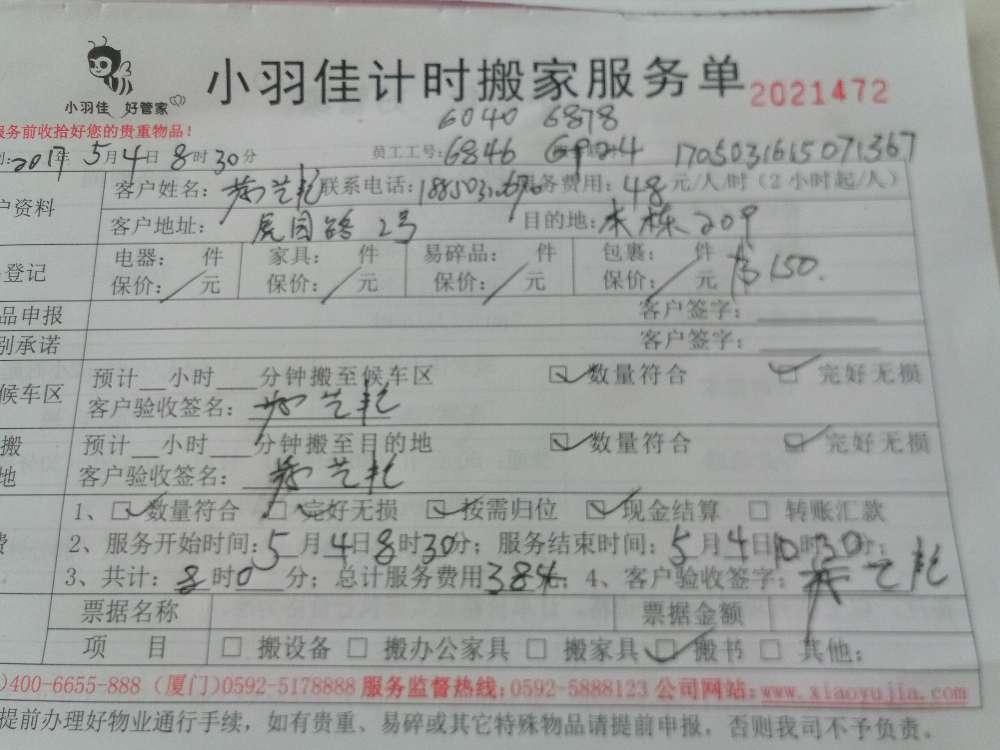 小羽佳计时搬家服务单 2021472
小羽佳 好管家
服务前收拾好您的贵重物品!
6040 6878
2017年5月4日8时30分 员工工号:6846 6924 1705031615071367
户资料 客户姓名: 联系电话: 服务费用:48元/人/时(2小时起/人)
客户地址: 虎园路2号 目的地:本栋209
登记 电器: 件 家具: 件 易碎品: 件 包裹: 件
保价: 元 保价: 元 保价: 元 保价: 元 150.
品申报 客户签字:
别承诺 客户签字:
候车区 预计__小时___分钟搬至候车区 数量符合 完好无损
客户验收签名:
搬 预计__小时___分钟搬至目的地 数量符合 完好无损
地 客户验收签名:
1、数量符合 完好无损 按需归位 现金结算 转账汇款
费 2、服务开始时间:5月4日8时30分;服务结束时间:5月4日10时30分;
3、共计:8时0分;总计服务费用384 4、客户验收签字:
票据名称 票据金额
项 目 搬设备 搬办公家具 搬家具 搬书 其他:
)400-6655-888 (厦门)0592-5178888 服务监督热线:0592-5888123 公司网站:www.xiaoyujia.com
提前办理好物业通行手续,如有贵重、易碎或其它特殊物品请提前申报,否则我司不予负责。